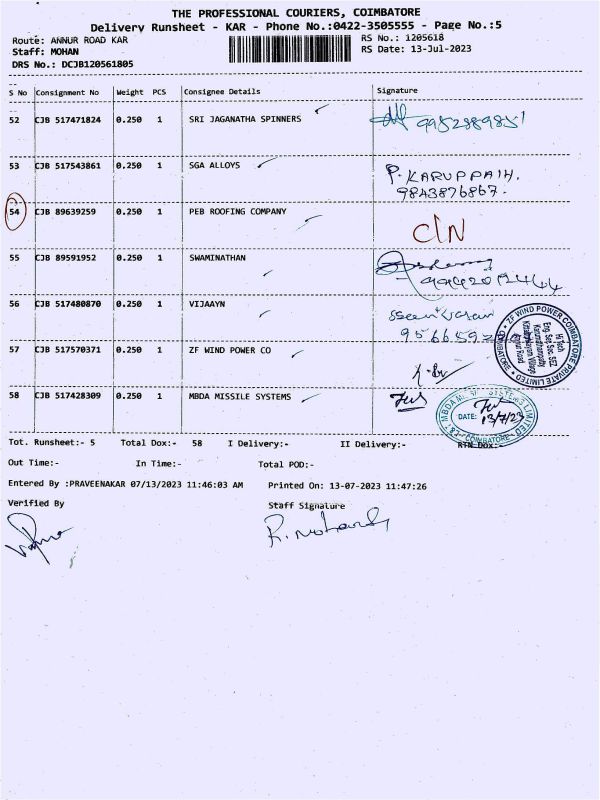 THE PROFESSIONAL COURIERS, COIMBATORE
Delivery Runsheet - KAR - Phone No.:0422-3505555 - Page No.:5
Route: ANNUR ROAD KAR RS No.: 1205618
Staff: MOHAN RS Date: 13-Jul-2023
DRS No.: DCJB120561805
S No Consignment No Weight PCS Consignee Details Signature
52 CJB 517471824 0.250 1 SRI JAGANATHA SPINNERS 9952889851
53 CJB 517543861 0.250 1 SGA ALLOYS P. KARUPPAIH.
9843876867.
54 CJB 89639259 0.250 1 PEB ROOFING COMPANY C/N
55 CJB 89591952 0.250 1 SWAMINATHAN
56 CJB 517480870 0.250 1 VIJAAYN
ZF WIND POWER COIMBATORE PRIVATE LIMITED
57 CJB 517570371 0.250 1 ZF WIND POWER CO
58 CJB 517428309 0.250 1 MBDA MISSILE SYSTEMS
DATE: 13/7/23
COIMBATORE
Tot. Runsheet:- 5 Total Dox:- 58 I Delivery:- II Delivery:- RTN Dox:-
Out Time:- In Time:- Total POD:-
Entered By :PRAVEENAKAR 07/13/2023 11:46:03 AM Printed On: 13-07-2023 11:47:26
Verified By Staff Signature
R. Mohan